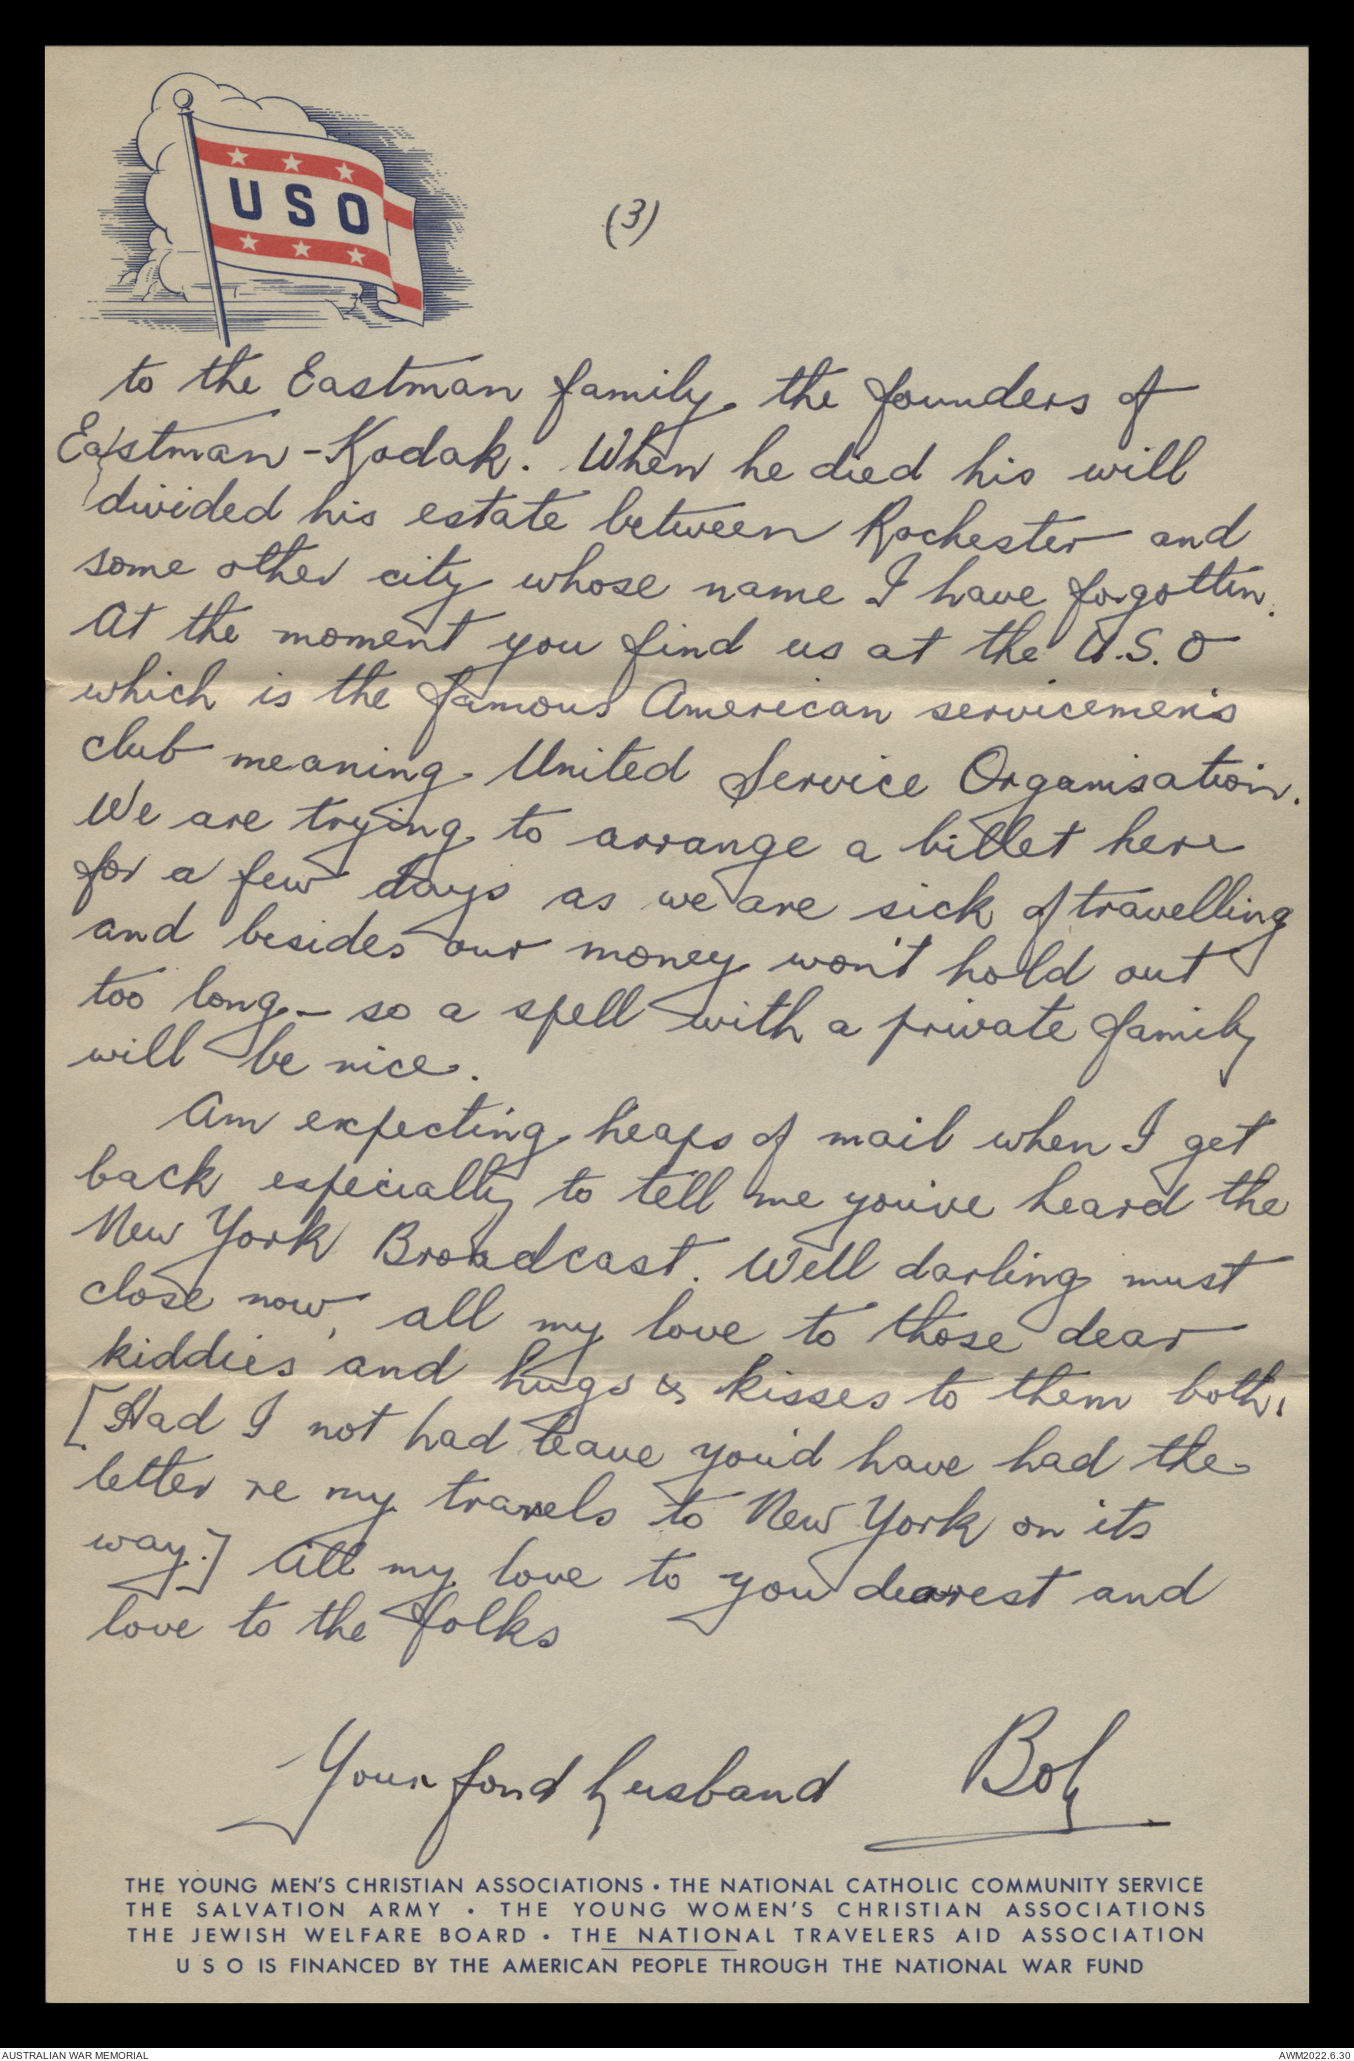 USO
(3)
to the Eastman family, the founders of
Eastman-Kodak. When he died his will
divided his estate between Rochester and
some other city whose name I have forgotten.
At the moment you find us at the U.S.O
which is the famous American servicemen's
club meaning United Service Organisation.
We are trying to arrange a billet here
for a few days as we are sick of travelling
and besides our money won't hold out
too long - so a spell with a private family
will be nice.
Am expecting heaps of mail when I get
back especially to tell me you've heard the
New York Broadcast. Well darling must
close now, all my love to those dear
kiddies and hugs & kisses to them both.
[Had I not had leave you'd have had the
letter re my travels to New York on its
way.] All my love to you dearest and
love to the folks
Your fond husband Bob
THE YOUNG MEN'S CHRISTIAN ASSOCIATIONS • THE NATIONAL CATHOLIC COMMUNITY SERVICE
THE SALVATION ARMY • THE YOUNG WOMEN'S CHRISTIAN ASSOCIATIONS
THE JEWISH WELFARE BOARD • THE NATIONAL TRAVELERS AID ASSOCIATION
USO IS FINANCED BY THE AMERICAN PEOPLE THROUGH THE NATIONAL WAR FUND
AUSTRALIAN WAR MEMORIAL
AWM2022.6.30